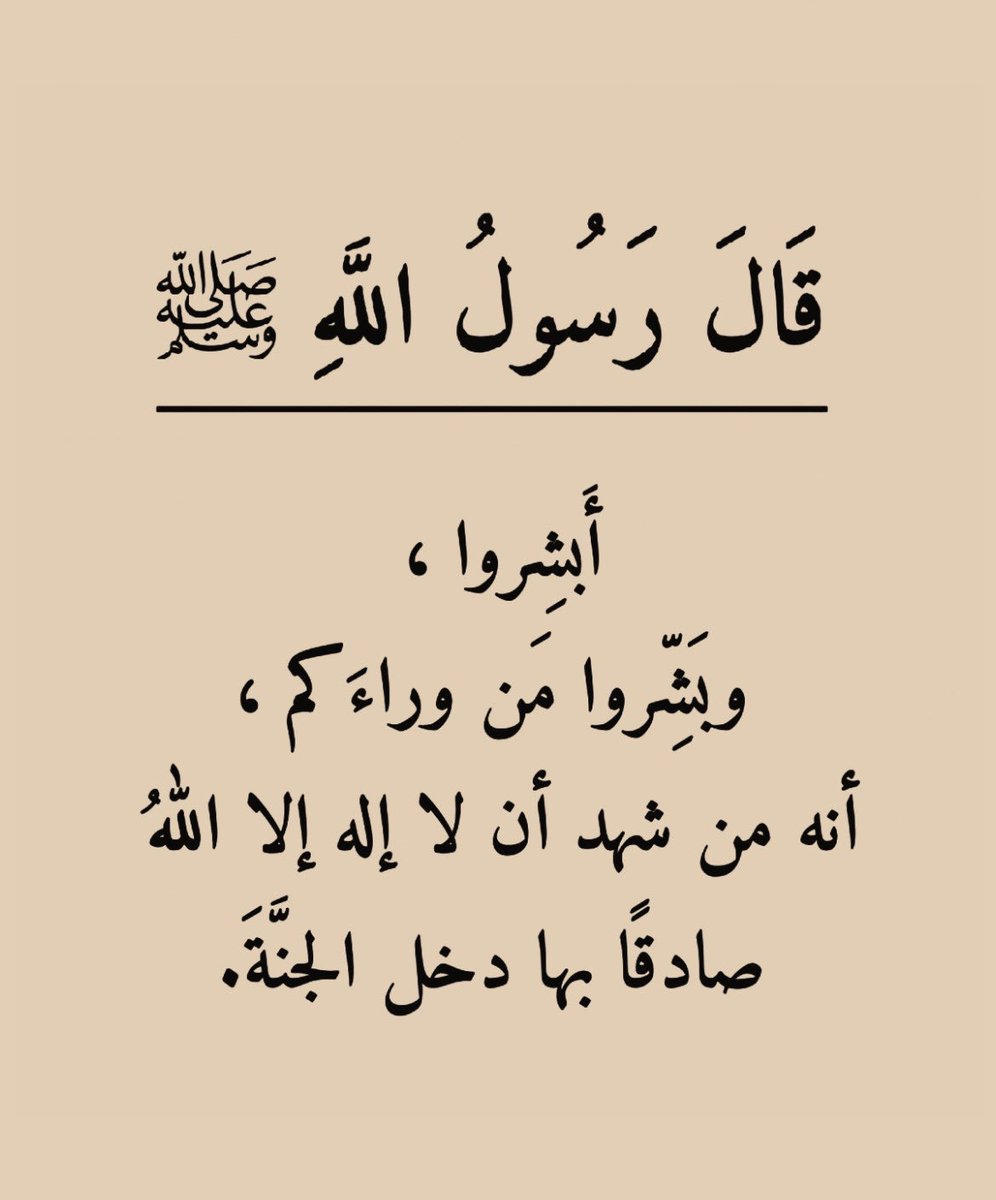 قَالَ رَسُولُ اللَّهِ ﷺ
أَبشِروا ،
وبَشِّروا مَن وراءَكم ،
أنه من شهد أن لا إله إلا اللهُ
صادقًا بها دخل الجنَّةَ.